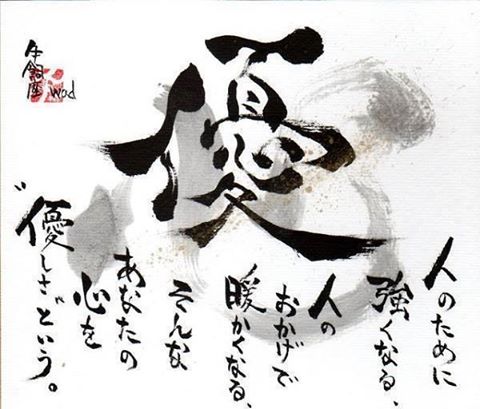 優
人のために
強くなる、
人の
おかげで
暖かくなる、
そんな
あなたの
心を
“優しさ”という。
wad